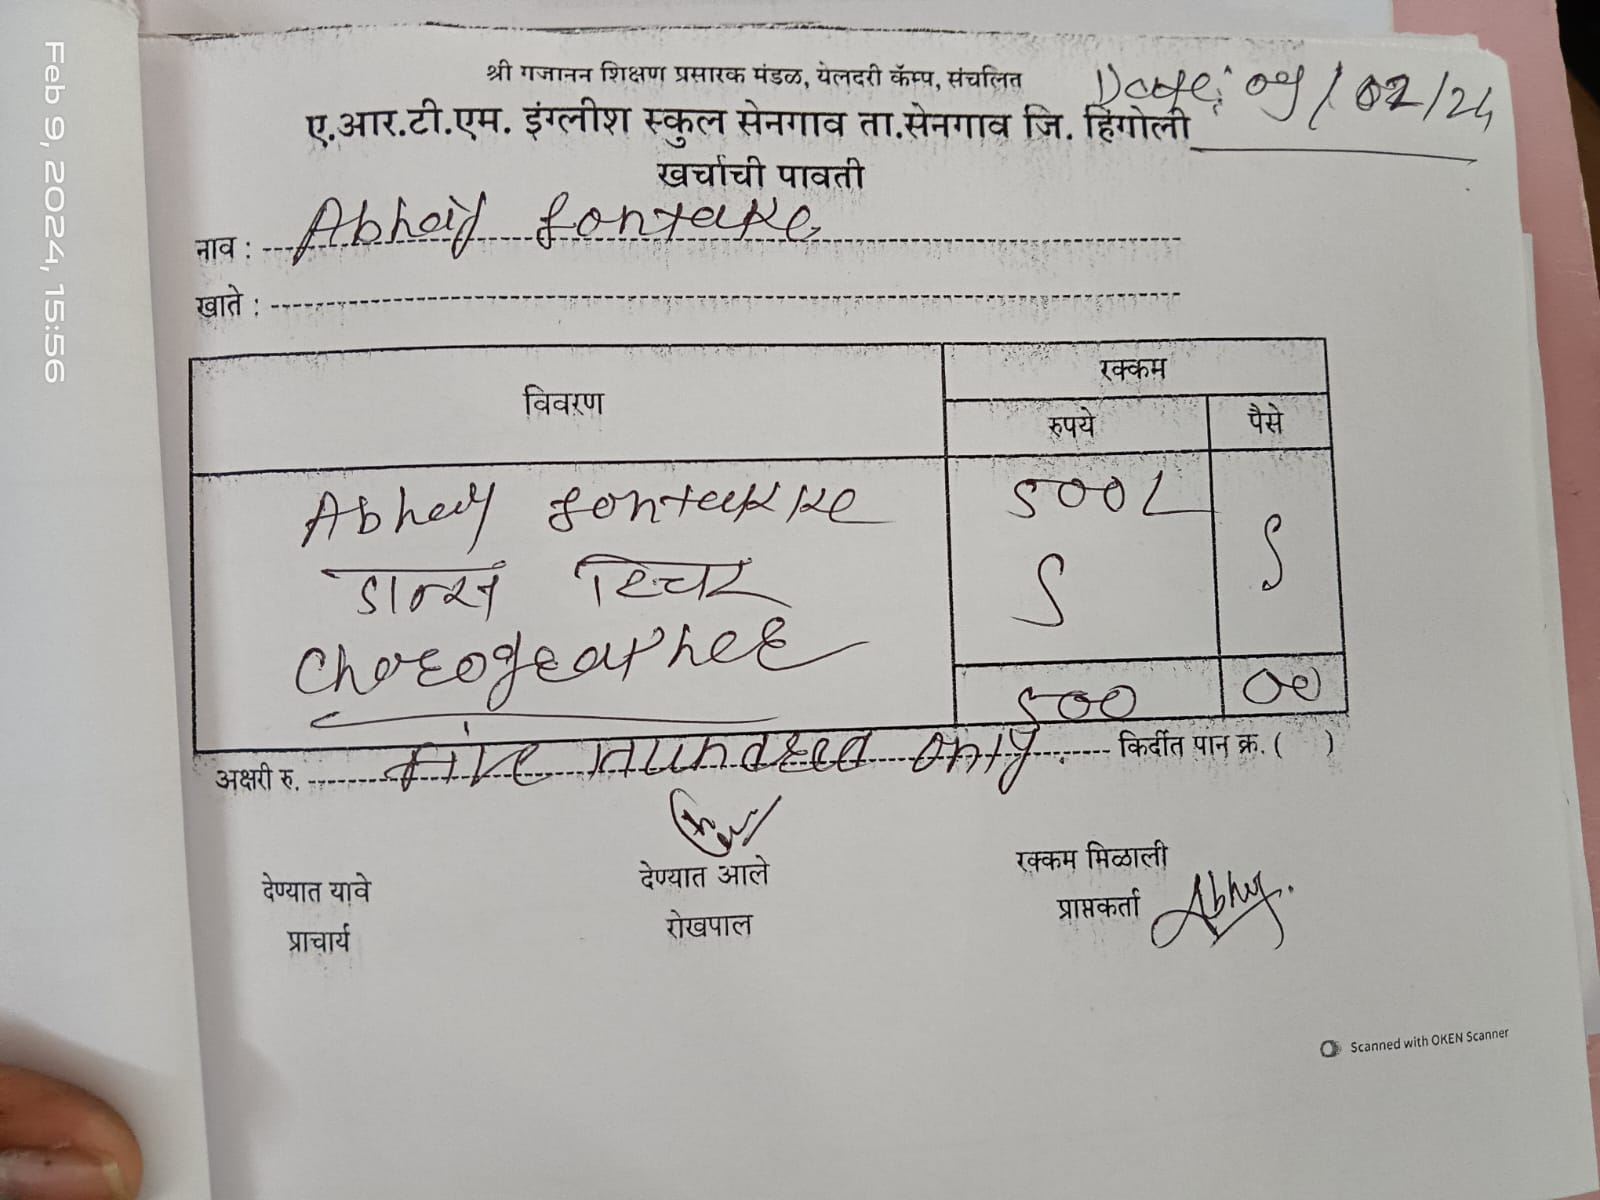 श्री गजानन शिक्षण प्रसारक मंडळ, येलदरी कॅम्प, संचलित
Date: 09/02/24
ए.आर.टी.एम. इंग्लीश स्कुल सेनगाव ता.सेनगाव जि. हिंगोली
खर्चाची पावती
नाव : Abhay Sontakke
खाते :
विवरण
रक्कम
रुपये
पैसे
Abhay Sontakke
500/-
डान्स टिचर
Choreographer
500
00
अक्षरी रु. Five Hundred Only. किर्दीत पान क्र. ( )
देण्यात यावे
देण्यात आले
रक्कम मिळाली
प्राचार्य
रोखपाल
प्राप्तकर्ता Abhay
Scanned with OKEN Scanner
Feb 9, 2024, 15:56